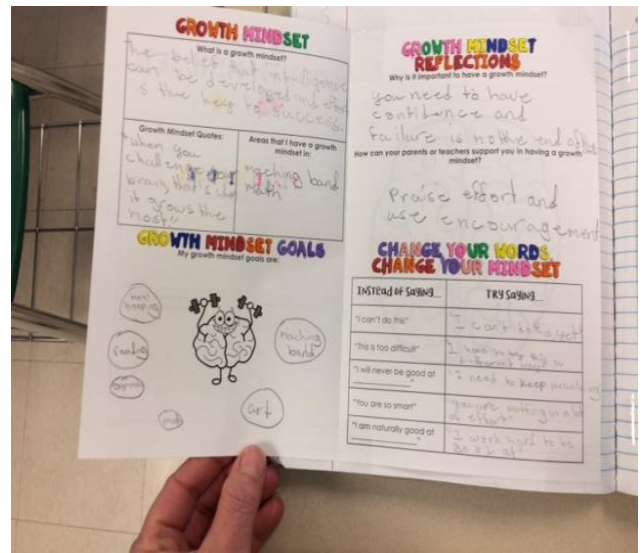 GROWTH MINDSET
What is a growth mindset?
the belief that intelligence
can be developed and effort
is the key to success.
Growth Mindset Quotes:
"when you
challenge your
brain, that's when
it grows the
most"
Areas that I have a growth
mindset in:
maching band
math
GROWTH MINDSET GOALS
My growth mindset goals are:
reading
maching
band
math
art
GROWTH MINDSET
REFLECTIONS
Why is it important to have a growth mindset?
you need to have
confidence and
failure is not the end of
How can your parents or teachers support you in having a growth
mindset?
Praise effort and
use encouragement
CHANGE YOUR WORDS,
CHANGE YOUR MINDSET
INSTEAD OF SAYING...
TRY SAYING...
"I can't do this"
"I can't do this yet"
"This is too difficult"
"I have to try this a
different way"
"I will never be good at
"
"I need to keep practicing"
"You are so smart"
"you're putting in a lot
of effort"
"I am naturally good at
"
"I work hard to be
good at"